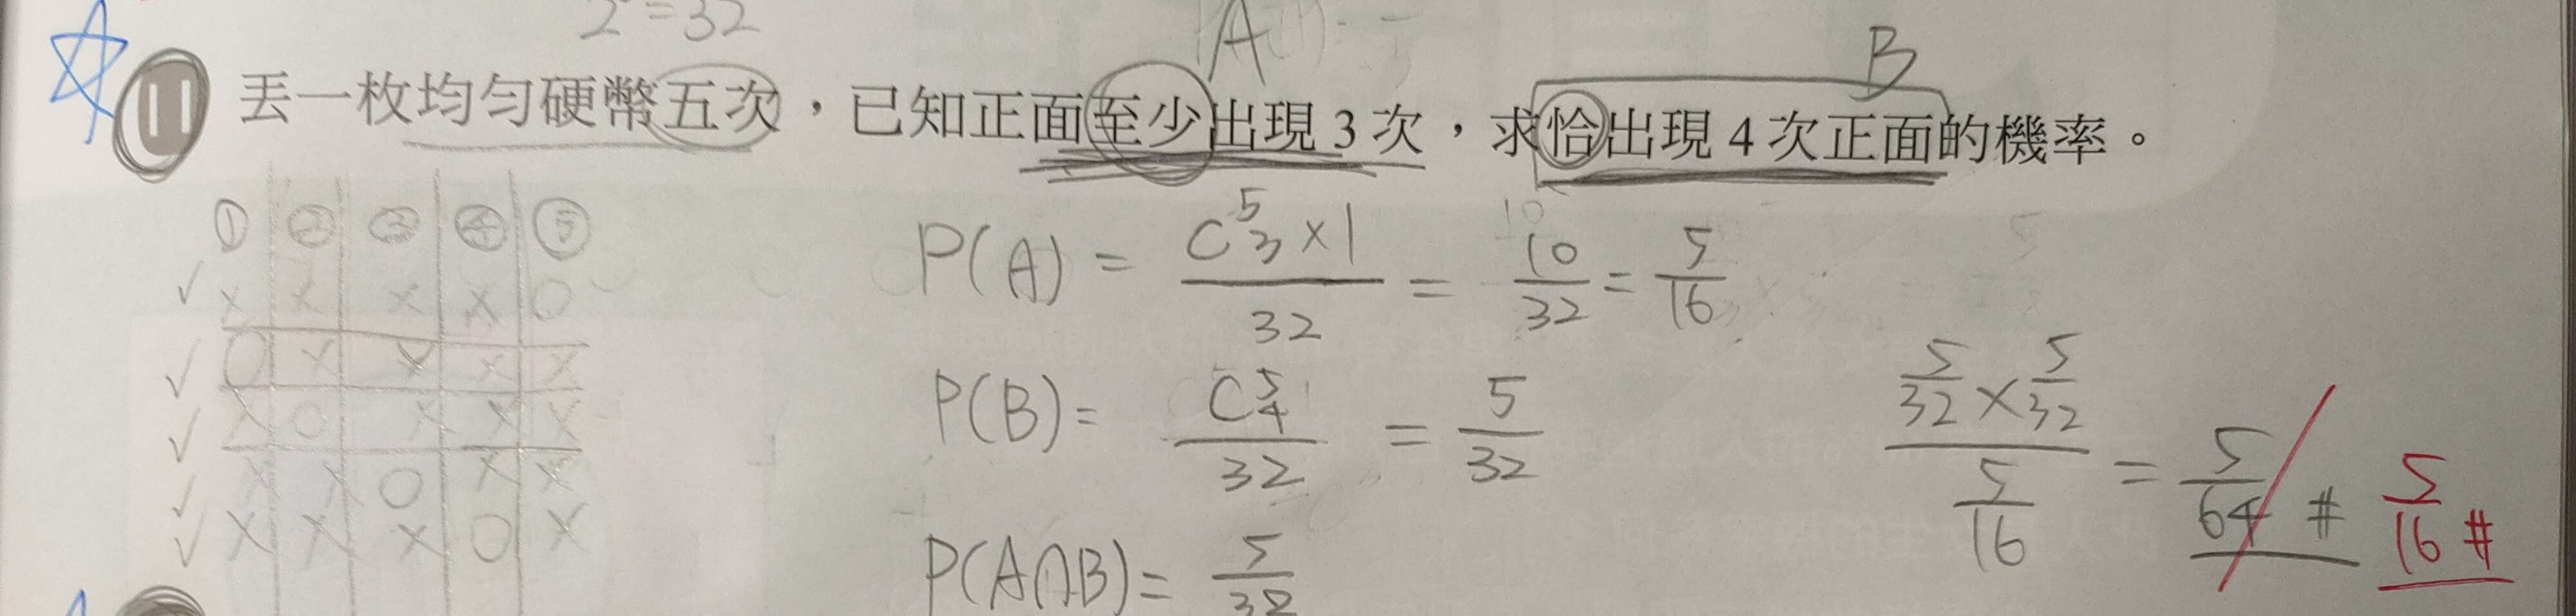 2 = 32
A
B
11 丟一枚均勻硬幣五次，已知正面至少出現 3 次，求恰出現 4 次正面的機率。
① ② ③ ④ ⑤
✓ X X X X O
✓ O X X X X
✓ X O X X X
✓ X X O X X
✓ X X X O X
P(A) = C⁵₃×1/32 = 10/32 = 5/16
P(B) = C⁵₄/32 = 5/32
P(A∩B) = 5/32
(5/32 × 5/32)/(5/16) = 5/64 #
5/16 #